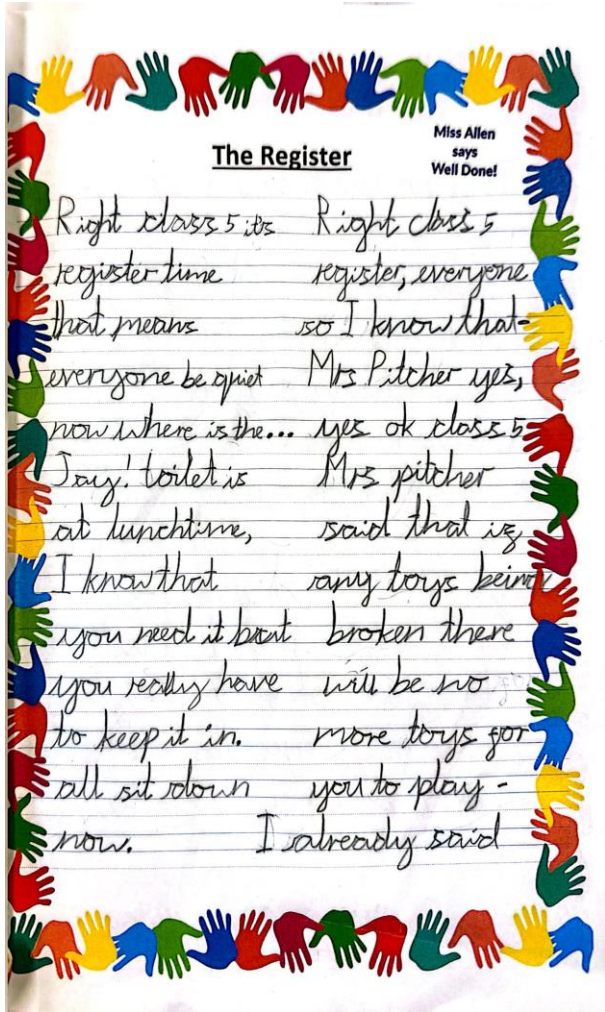 The Register
Miss Allen
says
Well Done!
Right class 5 its
register time
that means
everyone be quiet
now where is the...
Jay! toilet is
at lunchtime,
I know that
you need it but
you really have
to keep it in.
all sit down
now.
Right class 5
register, everyone
so I know that-
Mrs Pitcher yes,
yes ok class 5
Mrs pitcher
said that if
any toys being
broken there
will be no
more toys for
you to play -
I already said